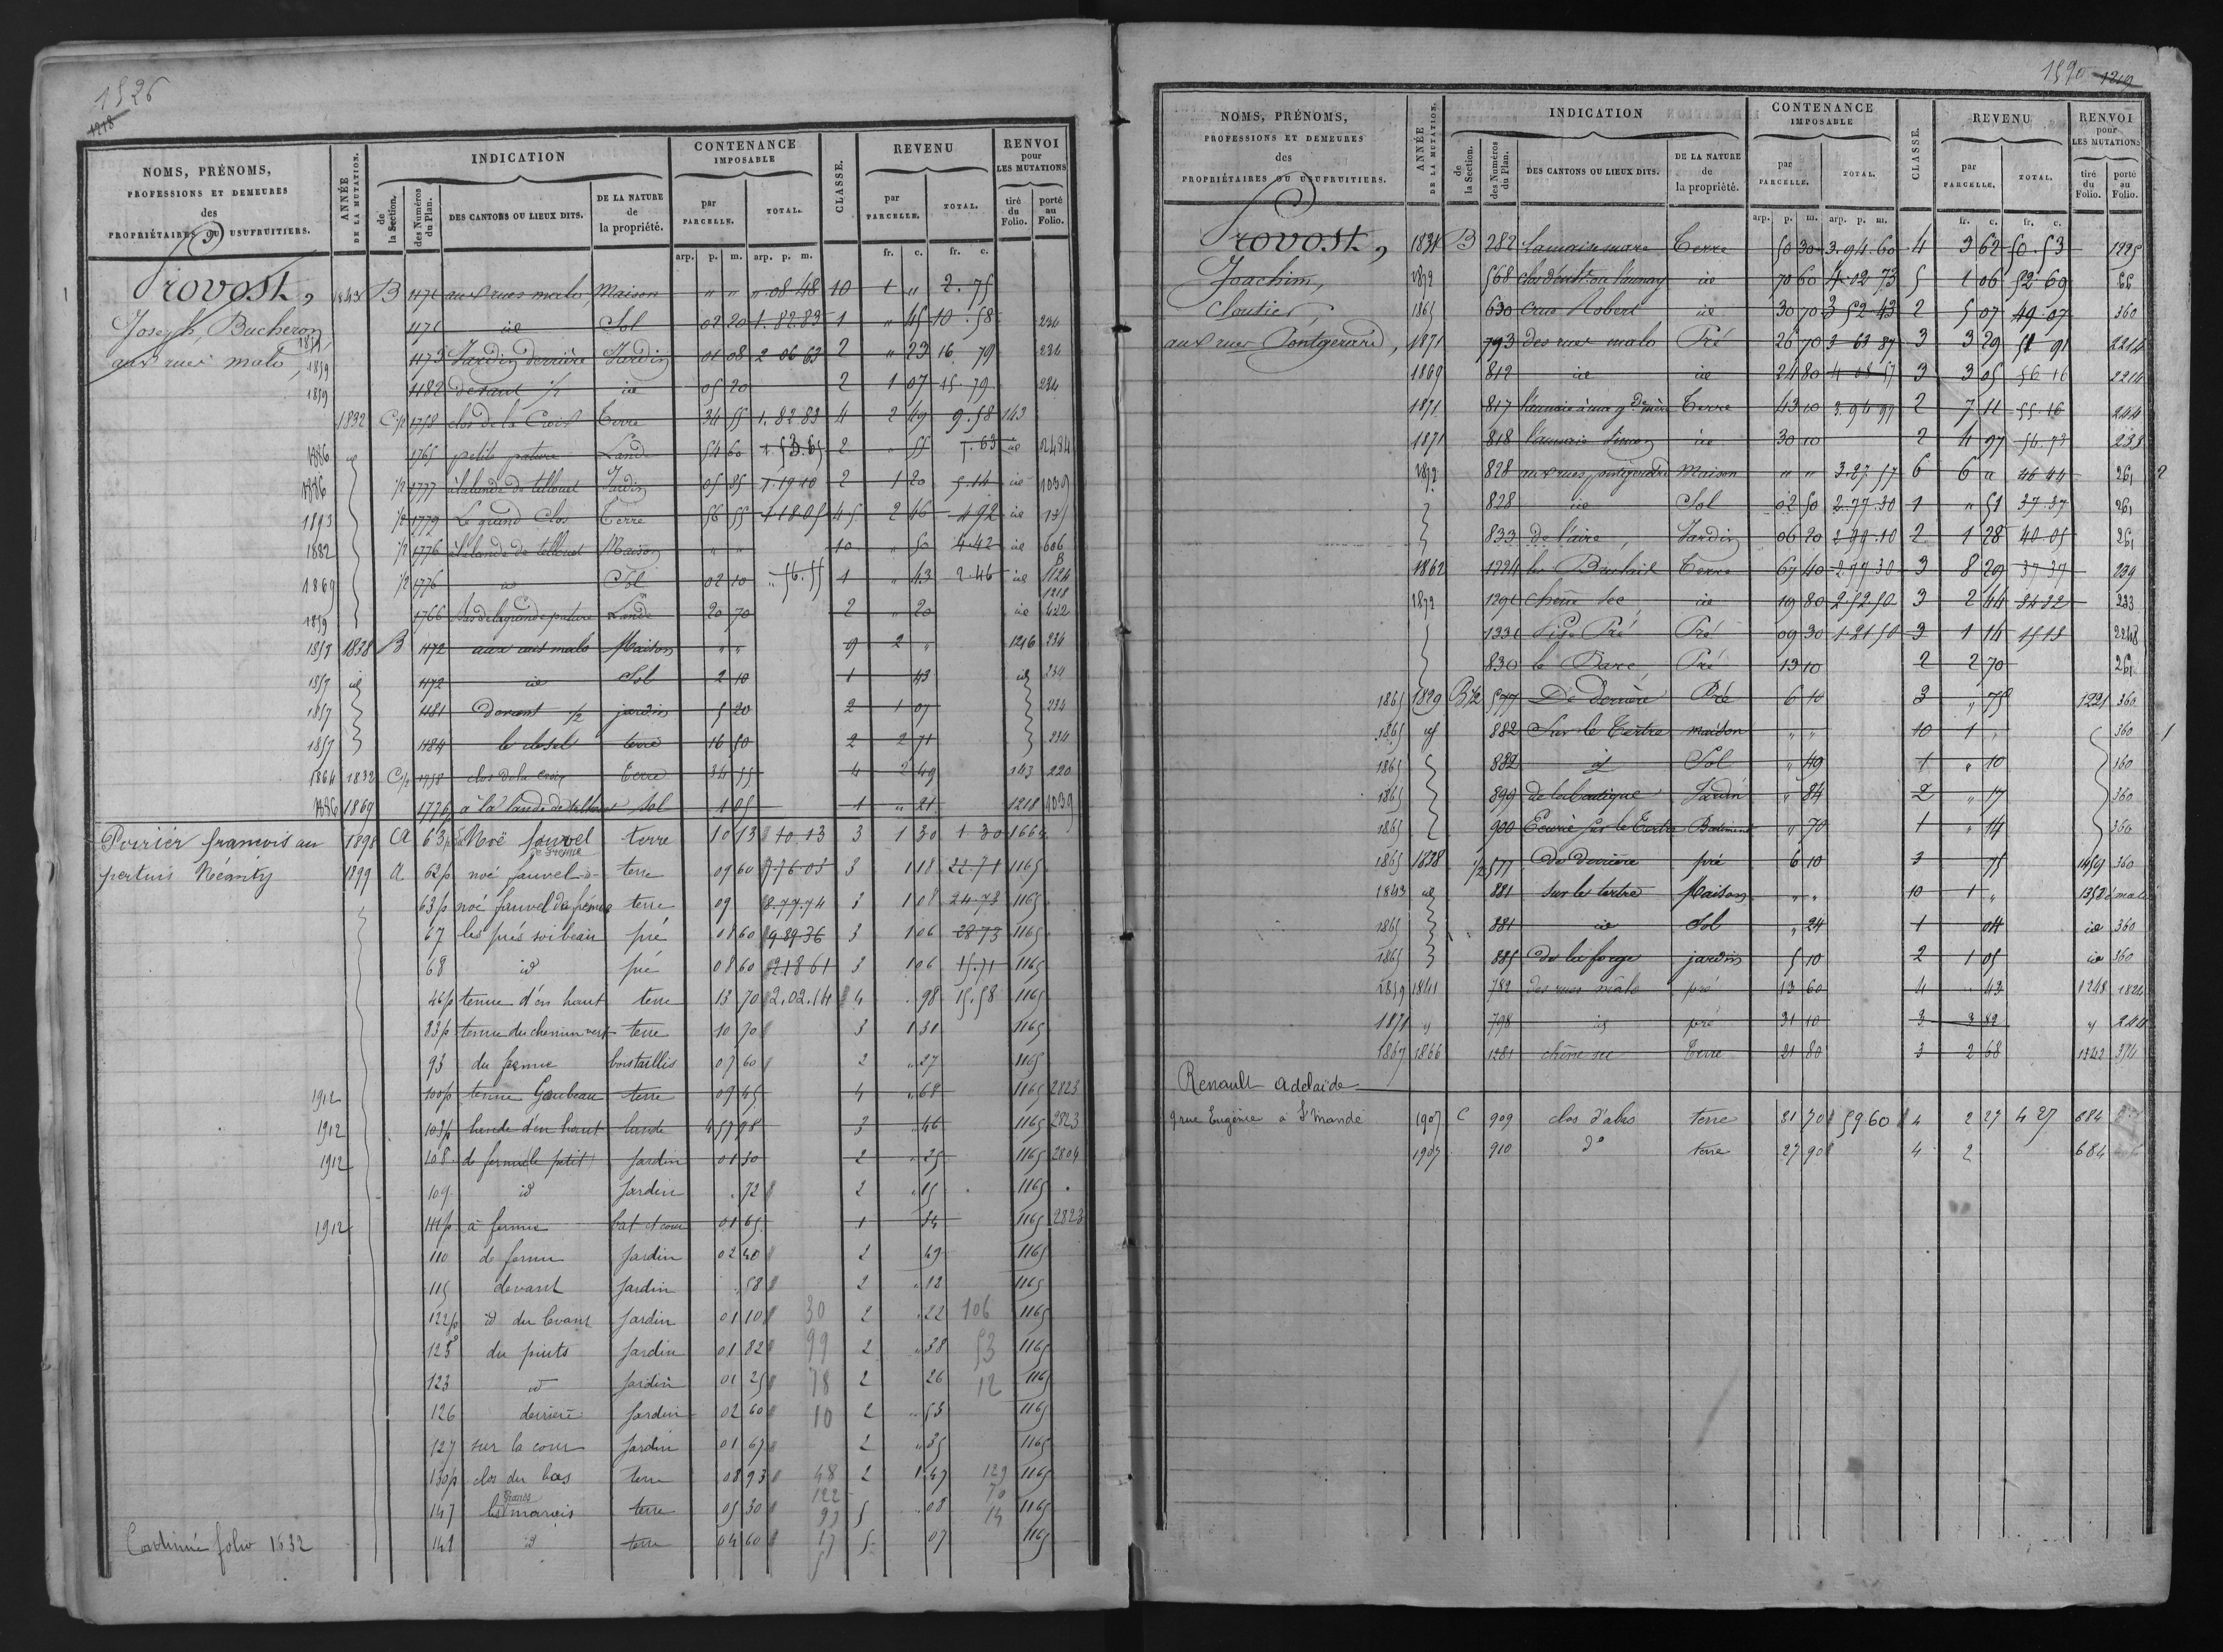 1526
1218
NOMS, PRÉNOMS,
PROFESSIONS ET DEMEURES
des
PROPRIÉTAIRES OU USUFRUITIERS.
ANNÉE DE LA MUTATION.
INDICATION
de la Section.
des Numéros du Plan.
DES CANTONS OU LIEUX DITS.
DE LA NATURE de la propriété.
CONTENANCE IMPOSABLE
par PARCELLE.
TOTAL.
CLASSE.
REVENU
par PARCELLE.
TOTAL.
RENVOI pour LES MUTATIONS
tiré du Folio.
porté au Folio.
arp. p. m. arp. p. m. fr. c. fr. c.
Provost,
Joseph, Bucheron,
aux rues malo
1843 B 1171 aux rues malo Maison " " " 08 48 10 1 " 2.75
1171 id Sol 02 20 1.82.83 1 " 45 10.58 234
1173 Jardin derrière Jardin 01 08 2 06 63 2 " 23 16.79 234
1859 1182 devant 1/2 id 05 20 2 1 07 15.79 234
1832 C 1/2 1758 clos de la Croix Terre 34 55 1.82.83 4 2 49 9.58 143
1886 id 1765 petite pature Lande 54 60 1.53.65 2 " 55 id 2484
1886 1/2 1777 à la lande de tellouet Jardin 05 85 1.19.10 2 1 20 5.14 id 1039
1893 1/2 1779 Le grand Clos Terre 56 55 1 18.05 4 5 2 46 4 92 id
1882 1/2 1776 à la lande de tellouet Maison " " 10 " 50 4.42 id 606
1869 1/2 1776 id Sol 02 10 " 56.55 1 " 43 2.46 id 1124
1218
1859 1766 bas de la grande pature Lande 20 70 2 " 20 id 422
1857 1838 B 1172 aux rues malo Maison " " 9 2 " 1216 234
1857 id 1172 id Sol 2 10 1 43 id 234
1857 1181 Devant 1/2 jardin 5 20 2 1 07 234
1857 1184 le closel terre 16 50 2 2 71 234
1864 1832 C 1/2 1758 clos de la croix Terre 34 55 4 2 49 143 220
1886 1869 1776 à la lande de tellouet Sol 1 05 1 " 21 1218 1039
Poirier francois au
pertuis Nécanity
1898 A 63p Noë fauvel de fremu terre 10 13 10 13 3 1 30 1 30 1664
1899 A 62p noé fauvel terre 09 60 7.76.05 3 1 18 22.71 1165
63p noé fauvel du fremu terre 09 8.77.74 3 1 08 24.73 1165
67 les prés soibeau pré 08 60 9 89 36 3 1 06 28 73 1165
68 id pré 08 60 2 18 61 3 1 06 15.71 1165
46p tenue d'en haut terre 13 70 2.02.14 4 98 15.58 1165
83p tenue du chemin vert terre 10 70 3 1 31 1165
93 du fremu bois taillis 07 60 2 " 27 1165
1912 100p tenue Gaubeau terre 09 45 4 " 68 1165 2823
1912 103p lande d'en haut lande 4 57 98 3 " 46 1165 2823
1912 108 de fermu le petit Jardin 01 30 2 " 25 1165 2804
109 id Jardin " 72 2 " 15 1165
1912 111p à fermu bat et cour 01 65 1 34 1165 2823
110 de fermu Jardin 02 40 2 49 1165
115 devant Jardin " 58 2 " 12 1165
122p id du levant Jardin 01 10 30 2 " 22 106 1165
125 du puits Jardin 01 82 99 2 " 38 53 1165
123 id Jardin 01 25 78 2 26 12 1165
126 derriere Jardin 02 60 10 2 " 53 1165
127 sur la cour Jardin 01 67 2 " 35 1165
130p clos du bas terre 08 93 48 2 1 47 129 1165
122 70
147 les grands marais terre 05 30 93 5 " 08 14 1165
148 id terre 04 60 17 5 07 1165
Continué folio 1632
1590 1219
NOMS, PRÉNOMS,
PROFESSIONS ET DEMEURES
des
PROPRIÉTAIRES OU USUFRUITIERS.
ANNÉE DE LA MUTATION.
INDICATION
de la Section.
des Numéros du Plan.
DES CANTONS OU LIEUX DITS.
DE LA NATURE de la propriété.
CONTENANCE IMPOSABLE
par PARCELLE.
TOTAL.
CLASSE.
REVENU
par PARCELLE.
TOTAL.
RENVOI pour LES MUTATIONS
tiré du Folio.
porté au Folio.
arp. p. m. arp. p. m. fr. c. fr. c.
Provost,
Joachim,
Cloutier,
aux rues Pontgerard,
B 282 Terre 50 30 3.94.60 4 3 62 50.53 1225
1872 568 id 70 60 4.02 73 5 1 06 52 69 66
1865 630 Crus Robert id 30 70 3 52 43 2 5 07 49.07 360
1871 793 des rues malo Pré 26 70 3 63 87 3 3 29 51 91 2214
1869 812 id id 24 80 4 08 57 3 3 05 56 16 2214
1871 817 Terre 43 10 3.94 97 2 7 11 55.16 244
1871 818 id 30 10 2 4 97 56.73 238
1872 828 aux rues pontgerard Maison " " 3.27.57 6 6 " 46 44 261 2
828 id Sol 02 50 2.77.30 1 " 51 37.37 261
833 de l'aire, Jardin 06 20 2.99.10 2 1 28 40.05 261
1862 1224 Terre 67 40 2.97 30 3 8 29 37 37 239
1872 1291 Chêne Sec id 19 80 2 52 50 3 2 44 34 32 233
1331 Pré 09 30 1 21 50 3 1 14 15 18 2248
830 le Parc Pré 13 10 2 2 70 261
1865 1829 B 1/2 577 De Derrière Pré 6 10 3 " 75 1221 360
1865 id 882 Sur le Tertre maison " " 10 1 " 360 1
1865 882 id Sol " 49 1 " 10 360
1865 899 de la boutique Jardin " 84 2 " 17 360
1865 900 Ecurie sur le Tertre Batiment " 70 1 " 14 360
1865 1838 1/2 577 De Derrière pré 6 10 3 75 1459 360
1843 id 881 Sur le tertre Maison " " 10 1 " 1352
1865 881 id Sol " 24 1 04 id 360
1865 885 de la forge jardin 5 10 2 1 05 id 360
1859 1841 782 des rues malo pré 13 60 4 43 1248 1824
1871 id 798 id pré 31 10 3 3 82 id 244
1867 1866 1281 chêne sec Terre 21 80 3 2 68 1342 374
Renault Adelaïde
9 rue Eugénie à St Mandé
1907 C 909 clos d'abas terre 31 70 59 60 4 2 27 4 27 684
1907 910 do terre 27 90 4 2 684